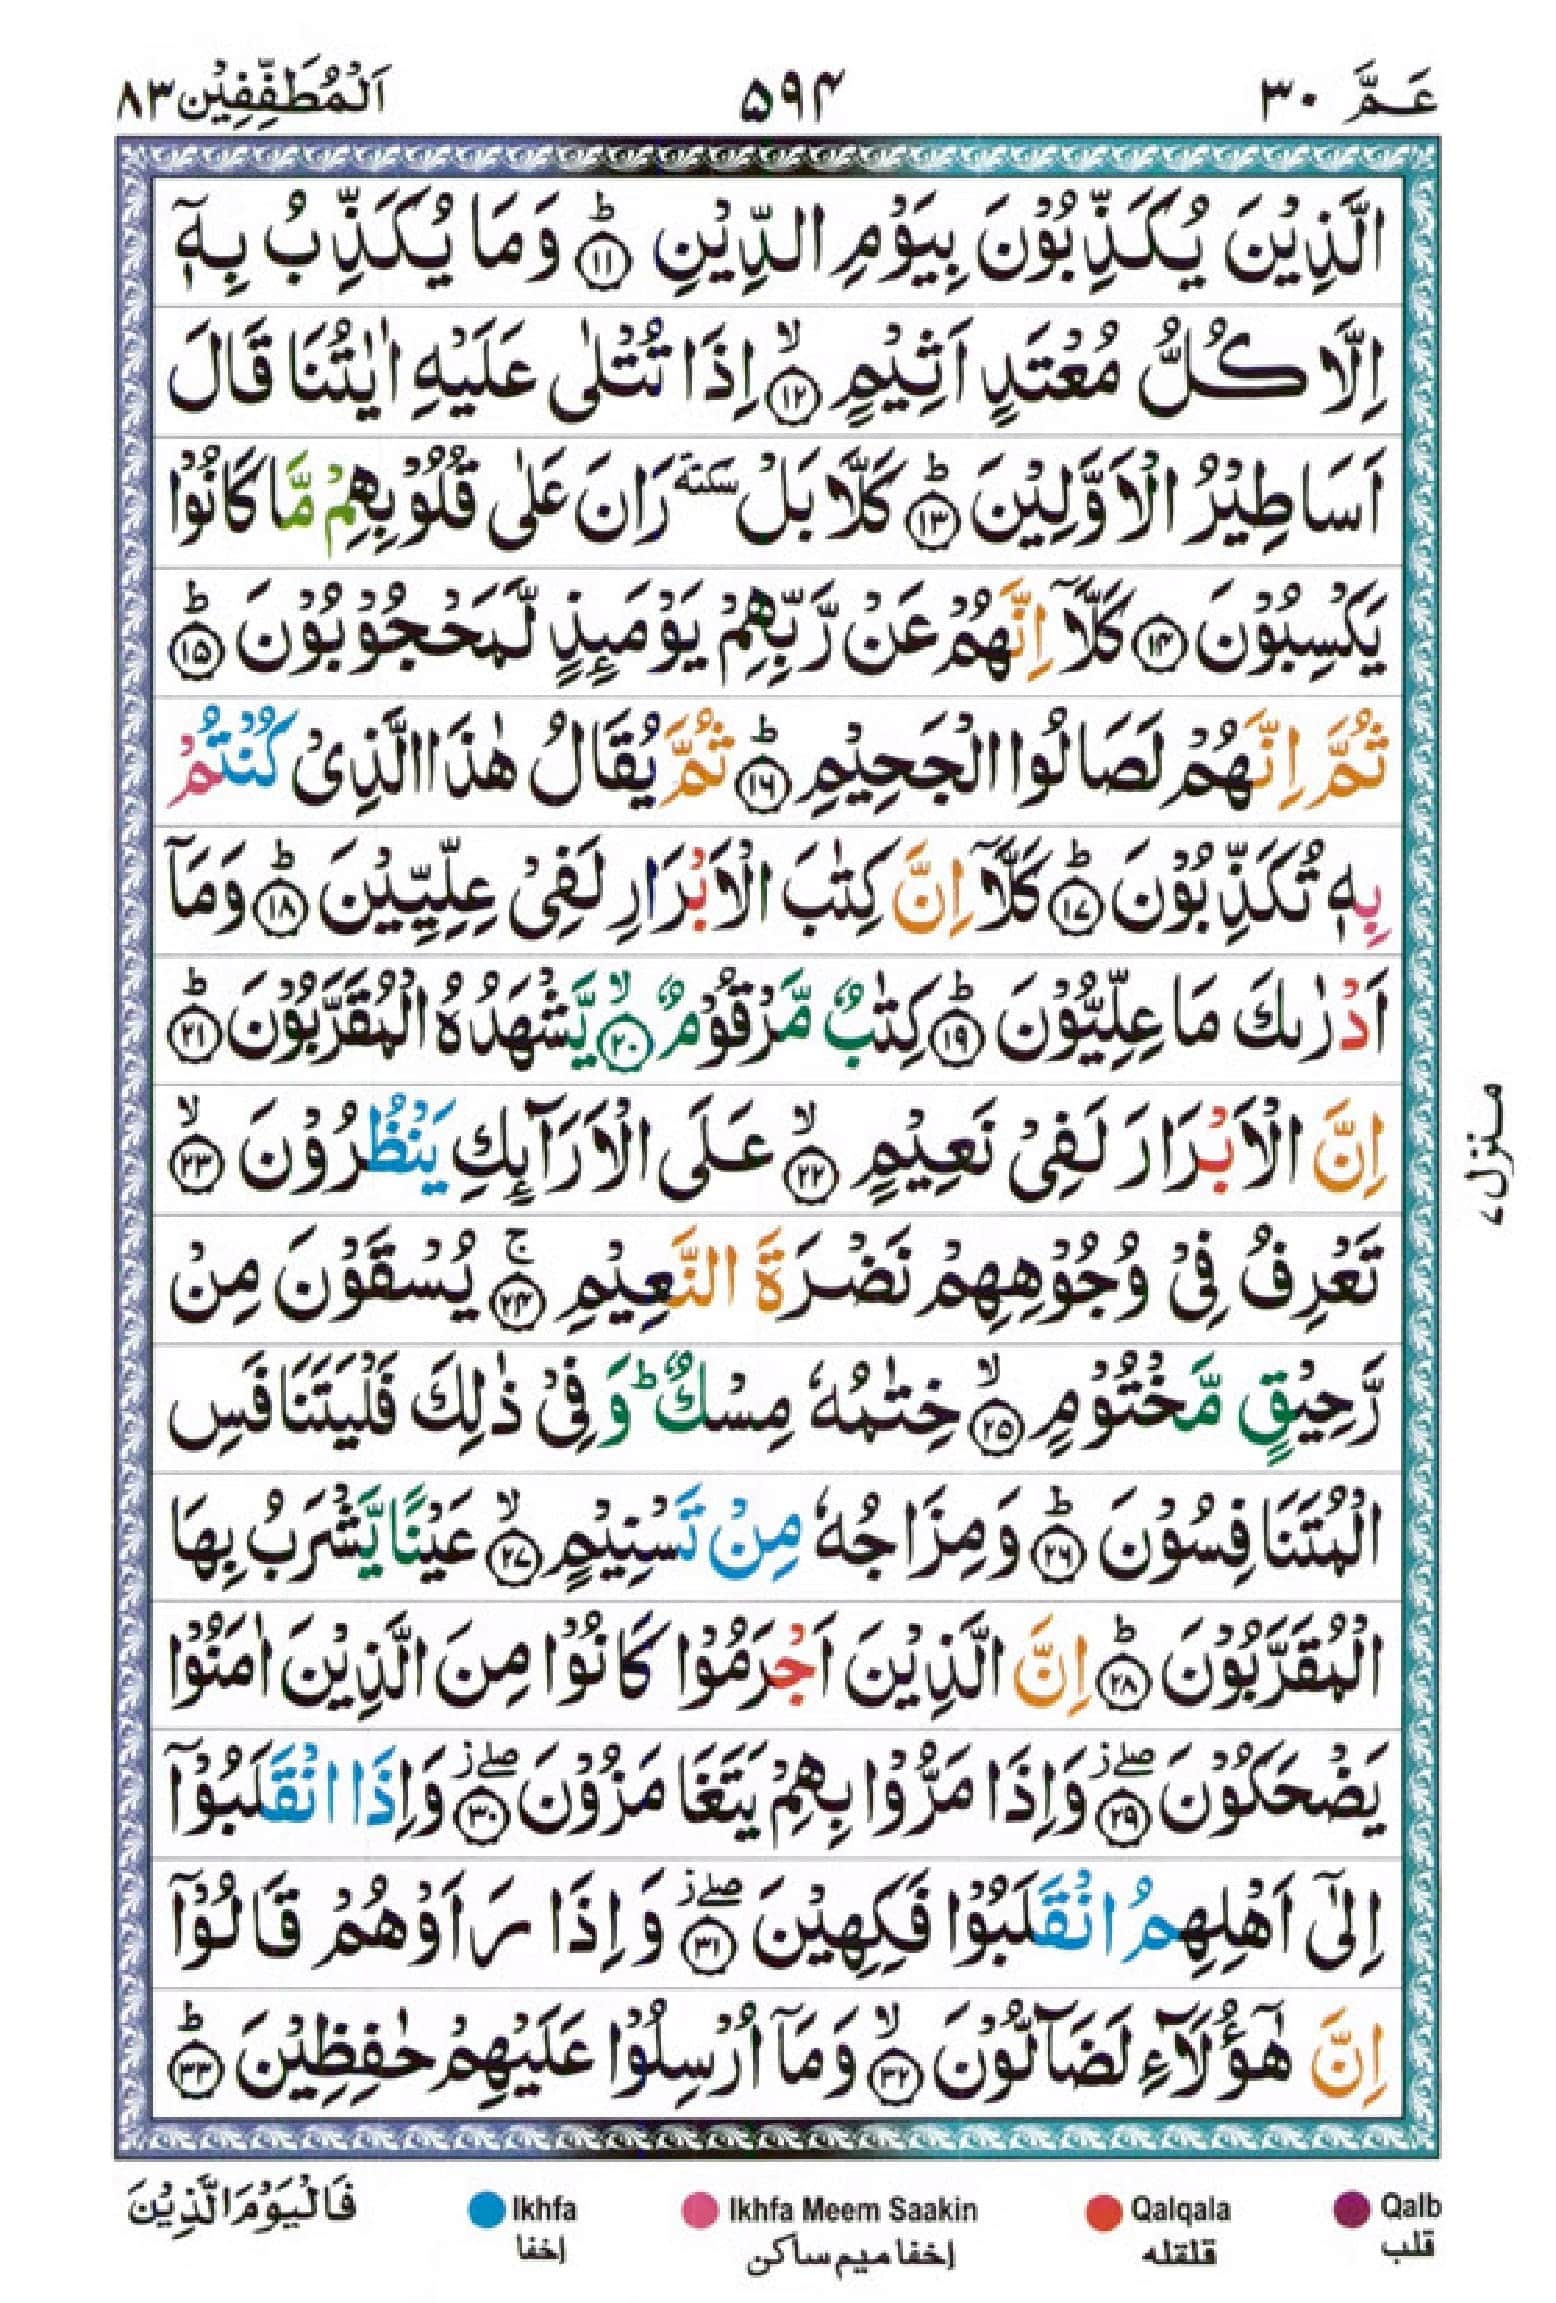 عَمَّ ۳۰
۵۹۴
اَلْمُطَفِّفِيْن ۸۳
الَّذِيْنَ يُكَذِّبُوْنَ بِيَوْمِ الدِّيْنِ ؕ﴿۱۱﴾ وَمَا يُكَذِّبُ بِهٖۤ
اِلَّا كُلُّ مُعْتَدٍ اَثِيْمٍ ۙ﴿۱۲﴾ اِذَا تُتْلٰى عَلَيْهِ اٰيٰتُنَا قَالَ
اَسَاطِيْرُ الْاَوَّلِيْنَ ؕ﴿۱۳﴾ كَلَّا بَلْ سكتة رَانَ عَلٰى قُلُوْبِهِمْ مَّا كَانُوْا
يَكْسِبُوْنَ ﴿۱۴﴾ كَلَّاۤ اِنَّهُمْ عَنْ رَّبِّهِمْ يَوْمَىِٕذٍ لَّمَحْجُوْبُوْنَ ؕ﴿۱۵﴾
ثُمَّ اِنَّهُمْ لَصَالُوا الْجَحِيْمِ ؕ﴿۱۶﴾ ثُمَّ يُقَالُ هٰذَا الَّذِىْ كُنْتُمْ
بِهٖ تُكَذِّبُوْنَ ؕ﴿۱۷﴾ كَلَّاۤ اِنَّ كِتٰبَ الْاَبْرَارِ لَفِىْ عِلِّيِّيْنَ ؕ﴿۱۸﴾ وَمَاۤ
اَدْرٰىكَ مَا عِلِّيُّوْنَ ؕ﴿۱۹﴾ كِتٰبٌ مَّرْقُوْمٌ ۙ﴿۲۰﴾ يَّشْهَدُهُ الْمُقَرَّبُوْنَ ؕ﴿۲۱﴾
اِنَّ الْاَبْرَارَ لَفِىْ نَعِيْمٍ ۙ﴿۲۲﴾ عَلَى الْاَرَآىِٕكِ يَنْظُرُوْنَ ۙ﴿۲۳﴾
تَعْرِفُ فِىْ وُجُوْهِهِمْ نَضْرَةَ النَّعِيْمِ ۚ﴿۲۴﴾ يُسْقَوْنَ مِنْ
رَّحِيْقٍ مَّخْتُوْمٍ ۙ﴿۲۵﴾ خِتٰمُهٗ مِسْكٌ ؕ وَفِىْ ذٰلِكَ فَلْيَتَنَافَسِ
الْمُتَنَافِسُوْنَ ؕ﴿۲۶﴾ وَمِزَاجُهٗ مِنْ تَسْنِيْمٍ ۙ﴿۲۷﴾ عَيْنًا يَّشْرَبُ بِهَا
الْمُقَرَّبُوْنَ ؕ﴿۲۸﴾ اِنَّ الَّذِيْنَ اَجْرَمُوْا كَانُوْا مِنَ الَّذِيْنَ اٰمَنُوْا
يَضْحَكُوْنَ ۖز﴿۲۹﴾ وَاِذَا مَرُّوْا بِهِمْ يَتَغَامَزُوْنَ ۖز﴿۳۰﴾ وَاِذَا انْقَلَبُوْۤا
اِلٰٓى اَهْلِهِمُ انْقَلَبُوْا فَكِهِيْنَ ۖز﴿۳۱﴾ وَاِذَا رَاَوْهُمْ قَالُوْۤا
اِنَّ هٰٓؤُلَآءِ لَضَآلُّوْنَ ۙ﴿۳۲﴾ وَمَاۤ اُرْسِلُوْا عَلَيْهِمْ حٰفِظِيْنَ ؕ﴿۳۳﴾
منزل ۷
فَالْيَوْمَ الَّذِيْنَ
Ikhfa
اخفا
Ikhfa Meem Saakin
اخفا ميم ساكن
Qalqala
قلقله
Qalb
قلب